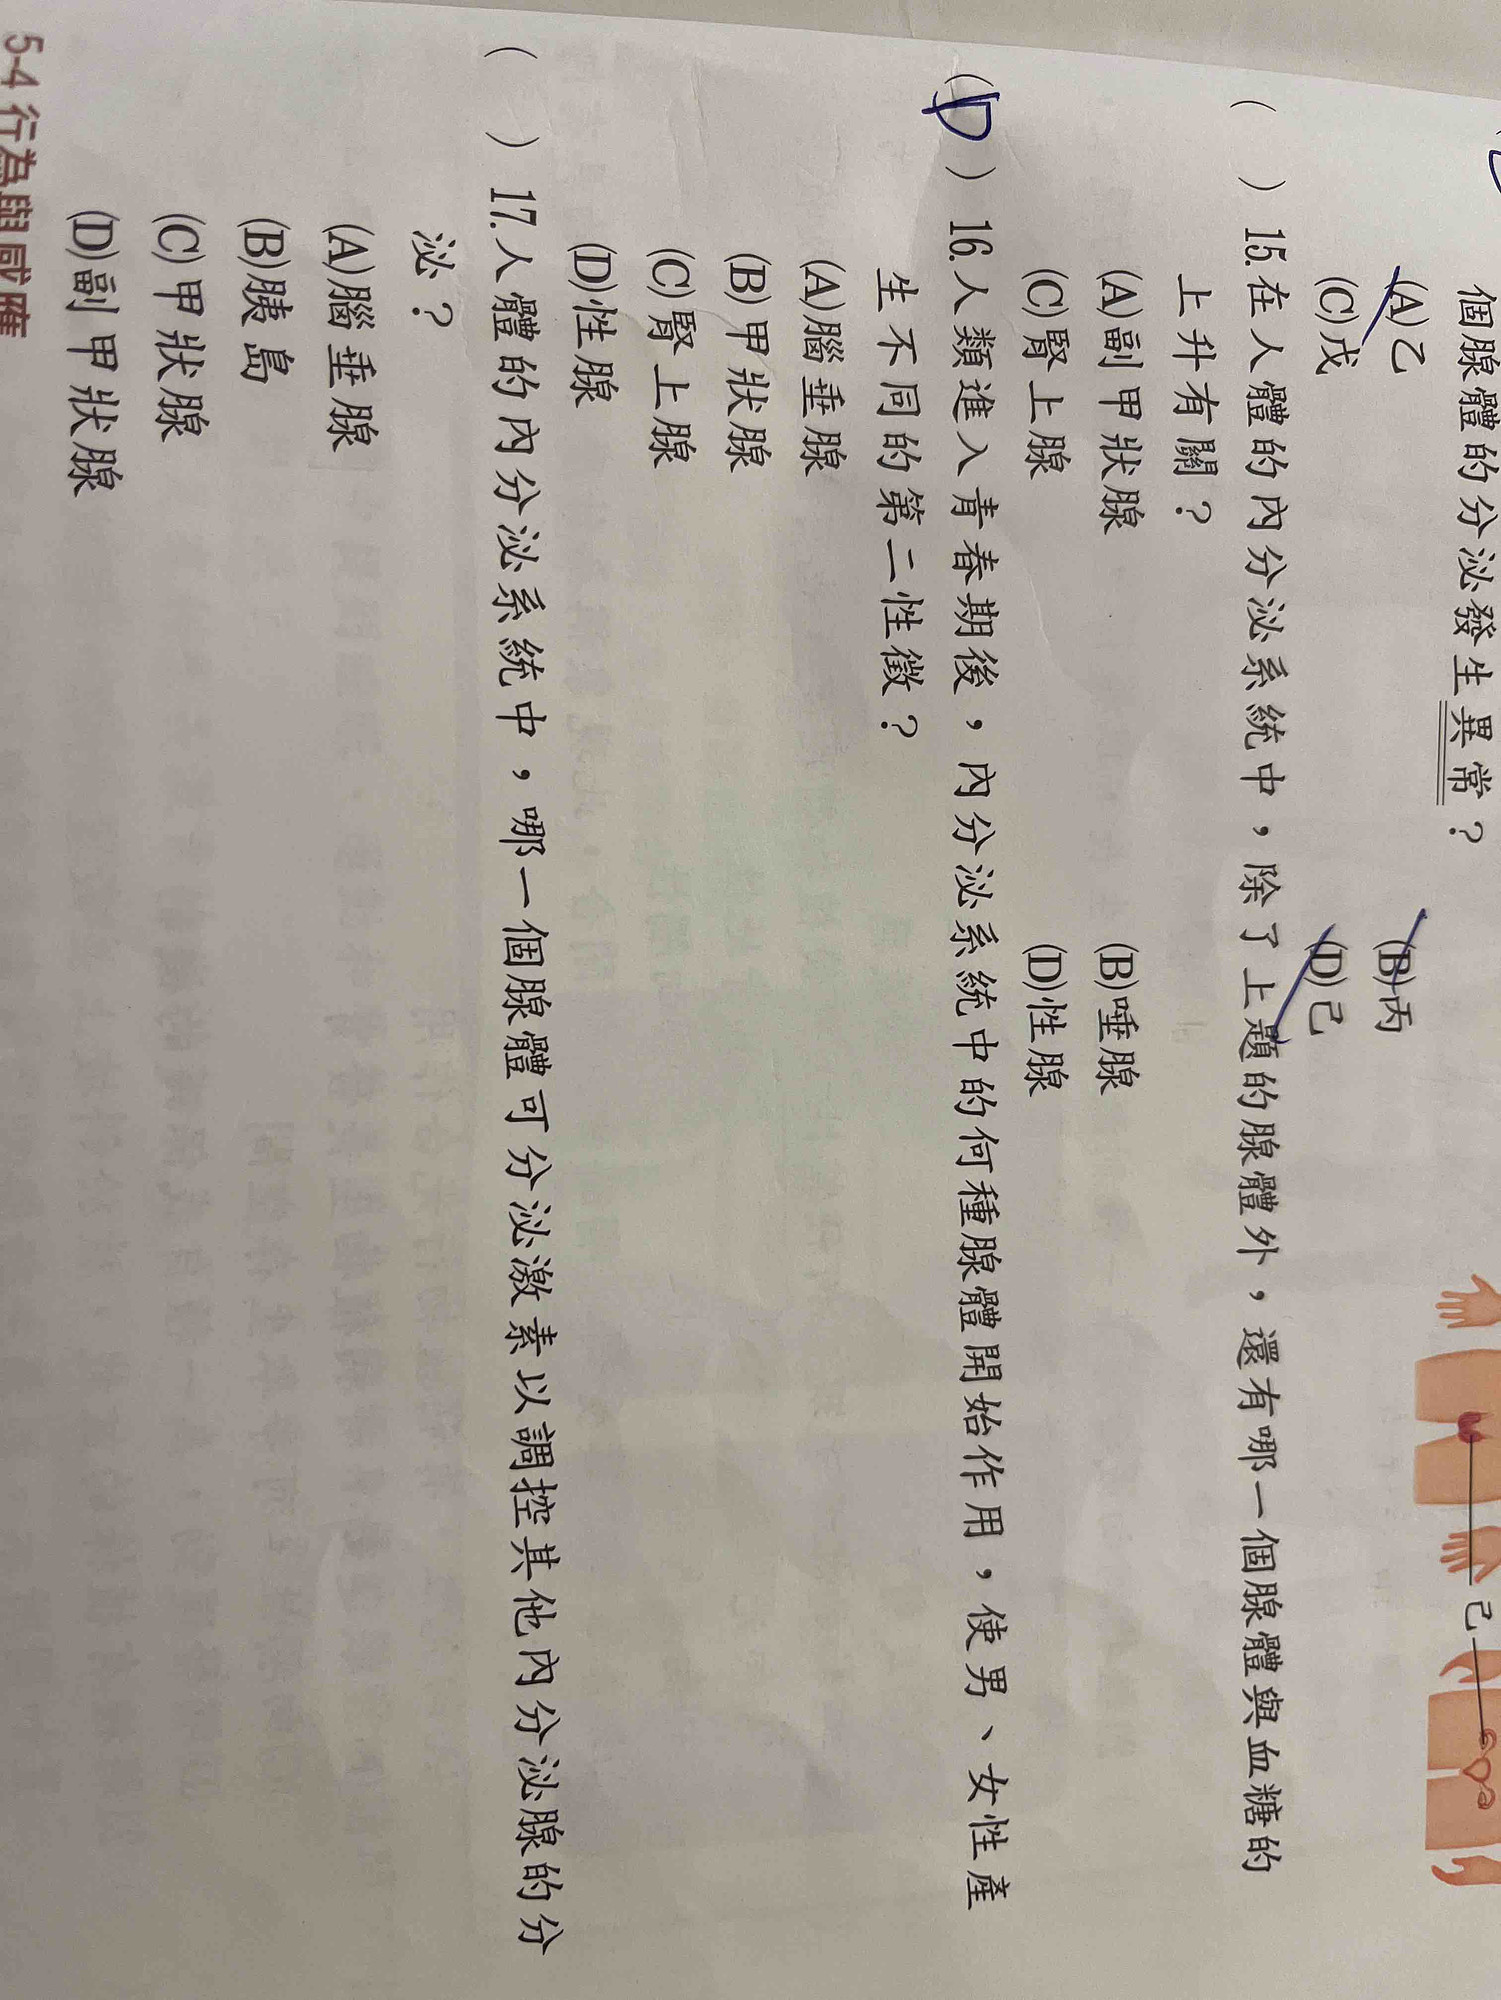 個腺體的分泌發生異常？
(A)乙 (B)丙
(C)戊 (D)己
己
( ) 15.在人體的內分泌系統中，除了上題的腺體外，還有哪一個腺體與血糖的
上升有關？
(A)副甲狀腺 (B)唾腺
(C)腎上腺 (D)性腺
(D) 16.人類進入青春期後，內分泌系統中的何種腺體開始作用，使男、女性產
生不同的第二性徵？
(A)腦垂腺
(B)甲狀腺
(C)腎上腺
(D)性腺
( ) 17.人體的內分泌系統中，哪一個腺體可分泌激素以調控其他內分泌腺的分
泌？
(A)腦垂腺
(B)胰島
(C)甲狀腺
(D)副甲狀腺
5-4 行為與感應